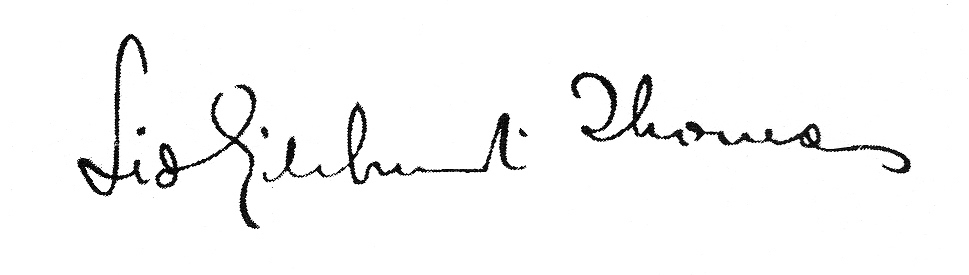 Sid Gilchrist Thomas